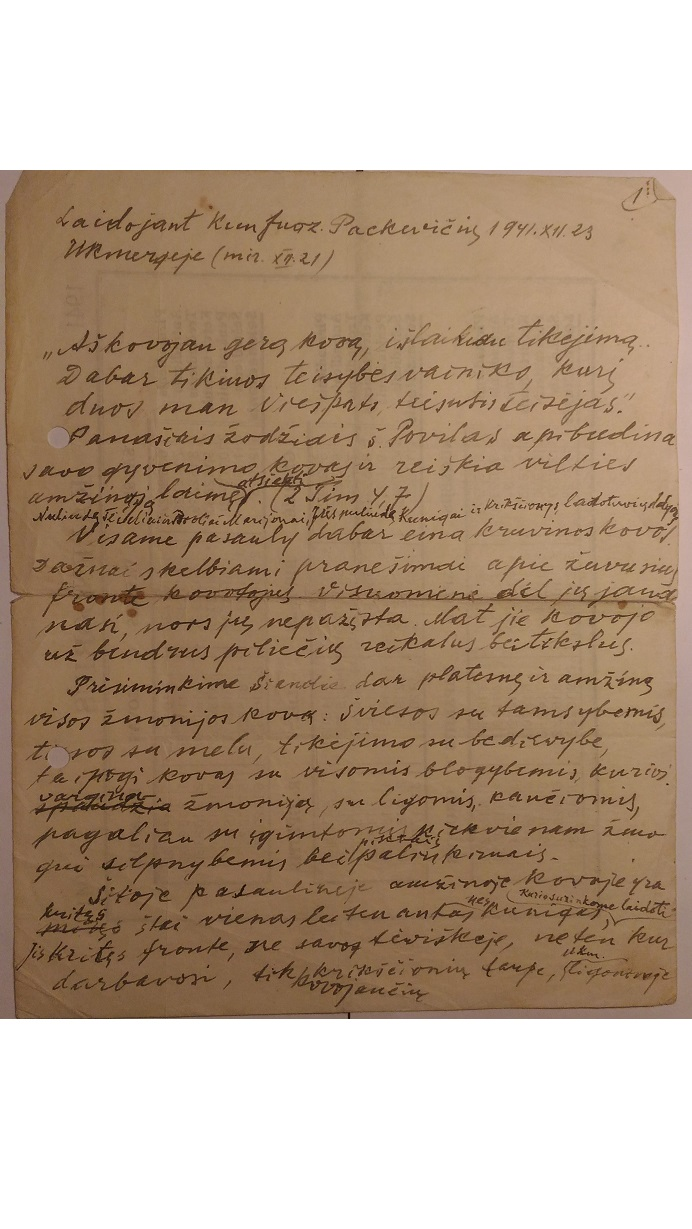 1
Laidojant kun Juoz. Packevičių 1941.XII.23
Ukmergėje (mir. XII.21)
„Aš kovojau gerą kovą, išlaikiau tikėjimą..
Dabar tikiuos teisybės vainiko, kurį
duos man Viešpats, teisusis teisėjas."
Panašiais žodžiais š. Povilas apibudina
savo gyvenimo kovas ir reiškia vilties
atsiekti
amžinąją laimę. (2 Tim 4,7)
Nuliudę Marijonai, Jūs nuliudę Kunigai ir Krikščionys, laidotuvių dalyviai
Visame pasauly dabar eina kruvinos kovos.
Dažnai skelbiami pranešimai apie žuvusius
fronte kovotojus. Visuomenė dėl jų jaudi
nasi, nors jų nepažįsta. Mat jie kovojo
už bendrus piliečių reikalus bei tikslus.
Prisiminkime šiandie dar platesnę ir amžiną
visos žmonijos kovą: šviesos su tamsybėmis,
tiesos su melu, tikėjimo su bedievybe,
taipogi kovas su visomis blogybėmis, kurios
vargina
žmoniją, su ligomis, kančiomis,
pagaliau su įgimtomis kiekvienam žmo
gui silpnybėmis bei palinkimais.
Šitoje pasaulinėje amžinoje kovoje yra
kritęs štai vienas leitenantas kunigas,
kurio susirinkome laidoti
Jis Kritęs fronte, ne savoj tėviškėje, ne ten kur
darbavosi, tik krikščionių tarpe, Ukm. ligoninėje
kovojančių